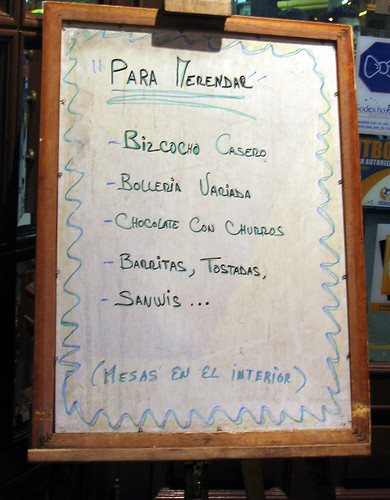 "PARA MERENDAR"
- BIZCOCHO CASERO
- BOLLERIA VARIADA
- CHOCOLATE CON CHURROS
- BARRITAS, TOSTADAS,
- SANWIS ...
(MESAS EN EL INTERIOR)